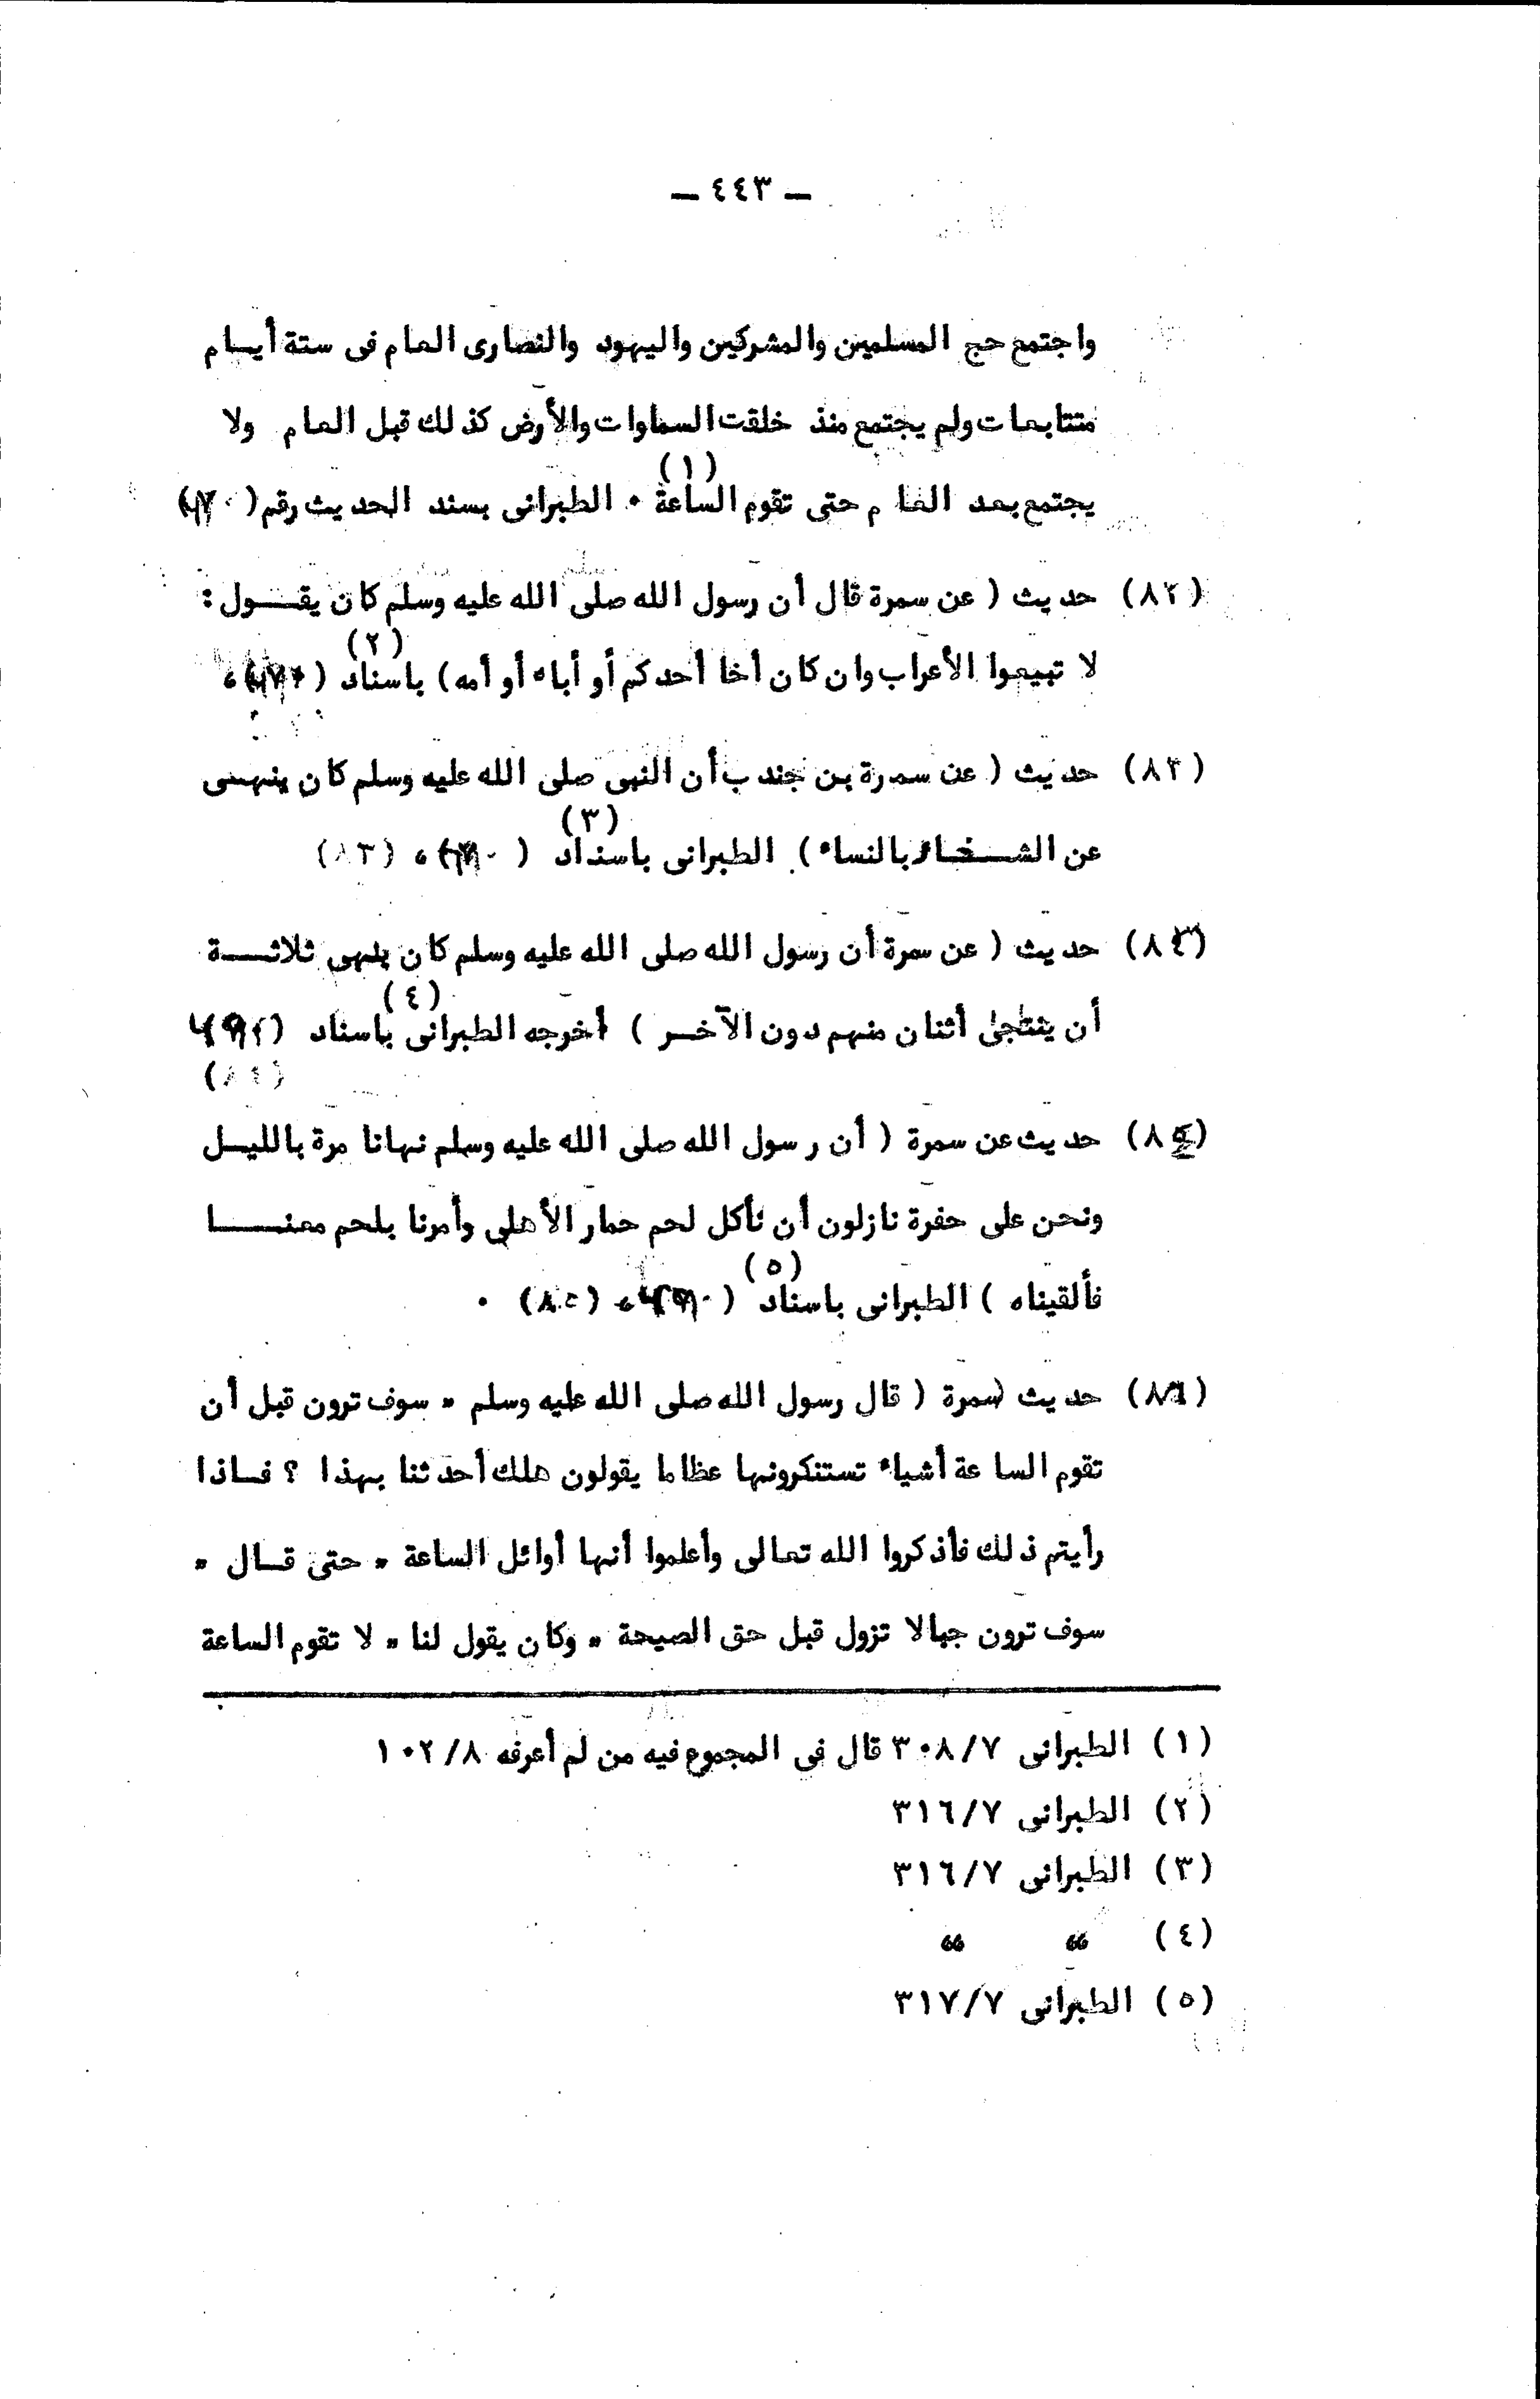 — ٤٤٣ —
واجتمع حج المسلمين والمشركين واليهود والنصارى العام فى ستة أيــام
متتابعات ولم يجتمع منذ خلقت السماوات والأرض كذلك قبل العام ولا
يجتمع بعد العام حتى تقوم الساعة (١) ٠ الطبرانى بسند الحديث رقم
(٨٢) حديث ( عن سمرة قال أن رسول الله صلى الله عليه وسلم كان يقــول :
لا تبيعوا الأعراب وان كان أخا أحدكم أو أباه أو أمه ) باسناد (٢)
(٨٣) حديث ( عن سمرة بن جندب أن النبى صلى الله عليه وسلم كان ينهــى
عن الشــغار بالنساء ) الطبرانى باسناد (٣) ، (٨٣)
(٨٤) حديث ( عن سمرة أن رسول الله صلى الله عليه وسلم كان ينهى ثلاثــة
أن ينتاجى أثنان منهم دون الآخــر ) أخرجه الطبرانى باسناد (٤)
(٨٤)
(٨٥) حديث عن سمرة ( أن رسول الله صلى الله عليه وسلم نهانا مرة بالليــل
ونحن على حفرة نازلون أن نأكل لحم حمار الأهلى وأمرنا بلحم معنــا
فألقيناه ) الطبرانى باسناد (٥) ، (٨٥) ٠
(٨٦) حديث سمرة ( قال رسول الله صلى الله عليه وسلم " سوف ترون قبل أن
تقوم الساعة أشياء تستنكرونها عظاما يقولون هلك أحدثنا بهذا ؟ فــاذا
رأيتم ذلك فأذكروا الله تعالى وأعلموا أنها أوائل الساعة " حتى قــال "
سوف ترون جبالا تزول قبل حق الصيحة " وكان يقول لنا " لا تقوم الساعة
(١) الطبرانى ٣٠٨/٧ قال فى المجموع فيه من لم أعرفه ١٠٢/٨
(٢) الطبرانى ٣١٦/٧
(٣) الطبرانى ٣١٦/٧
(٤) " "
(٥) الطبرانى ٣١٧/٧